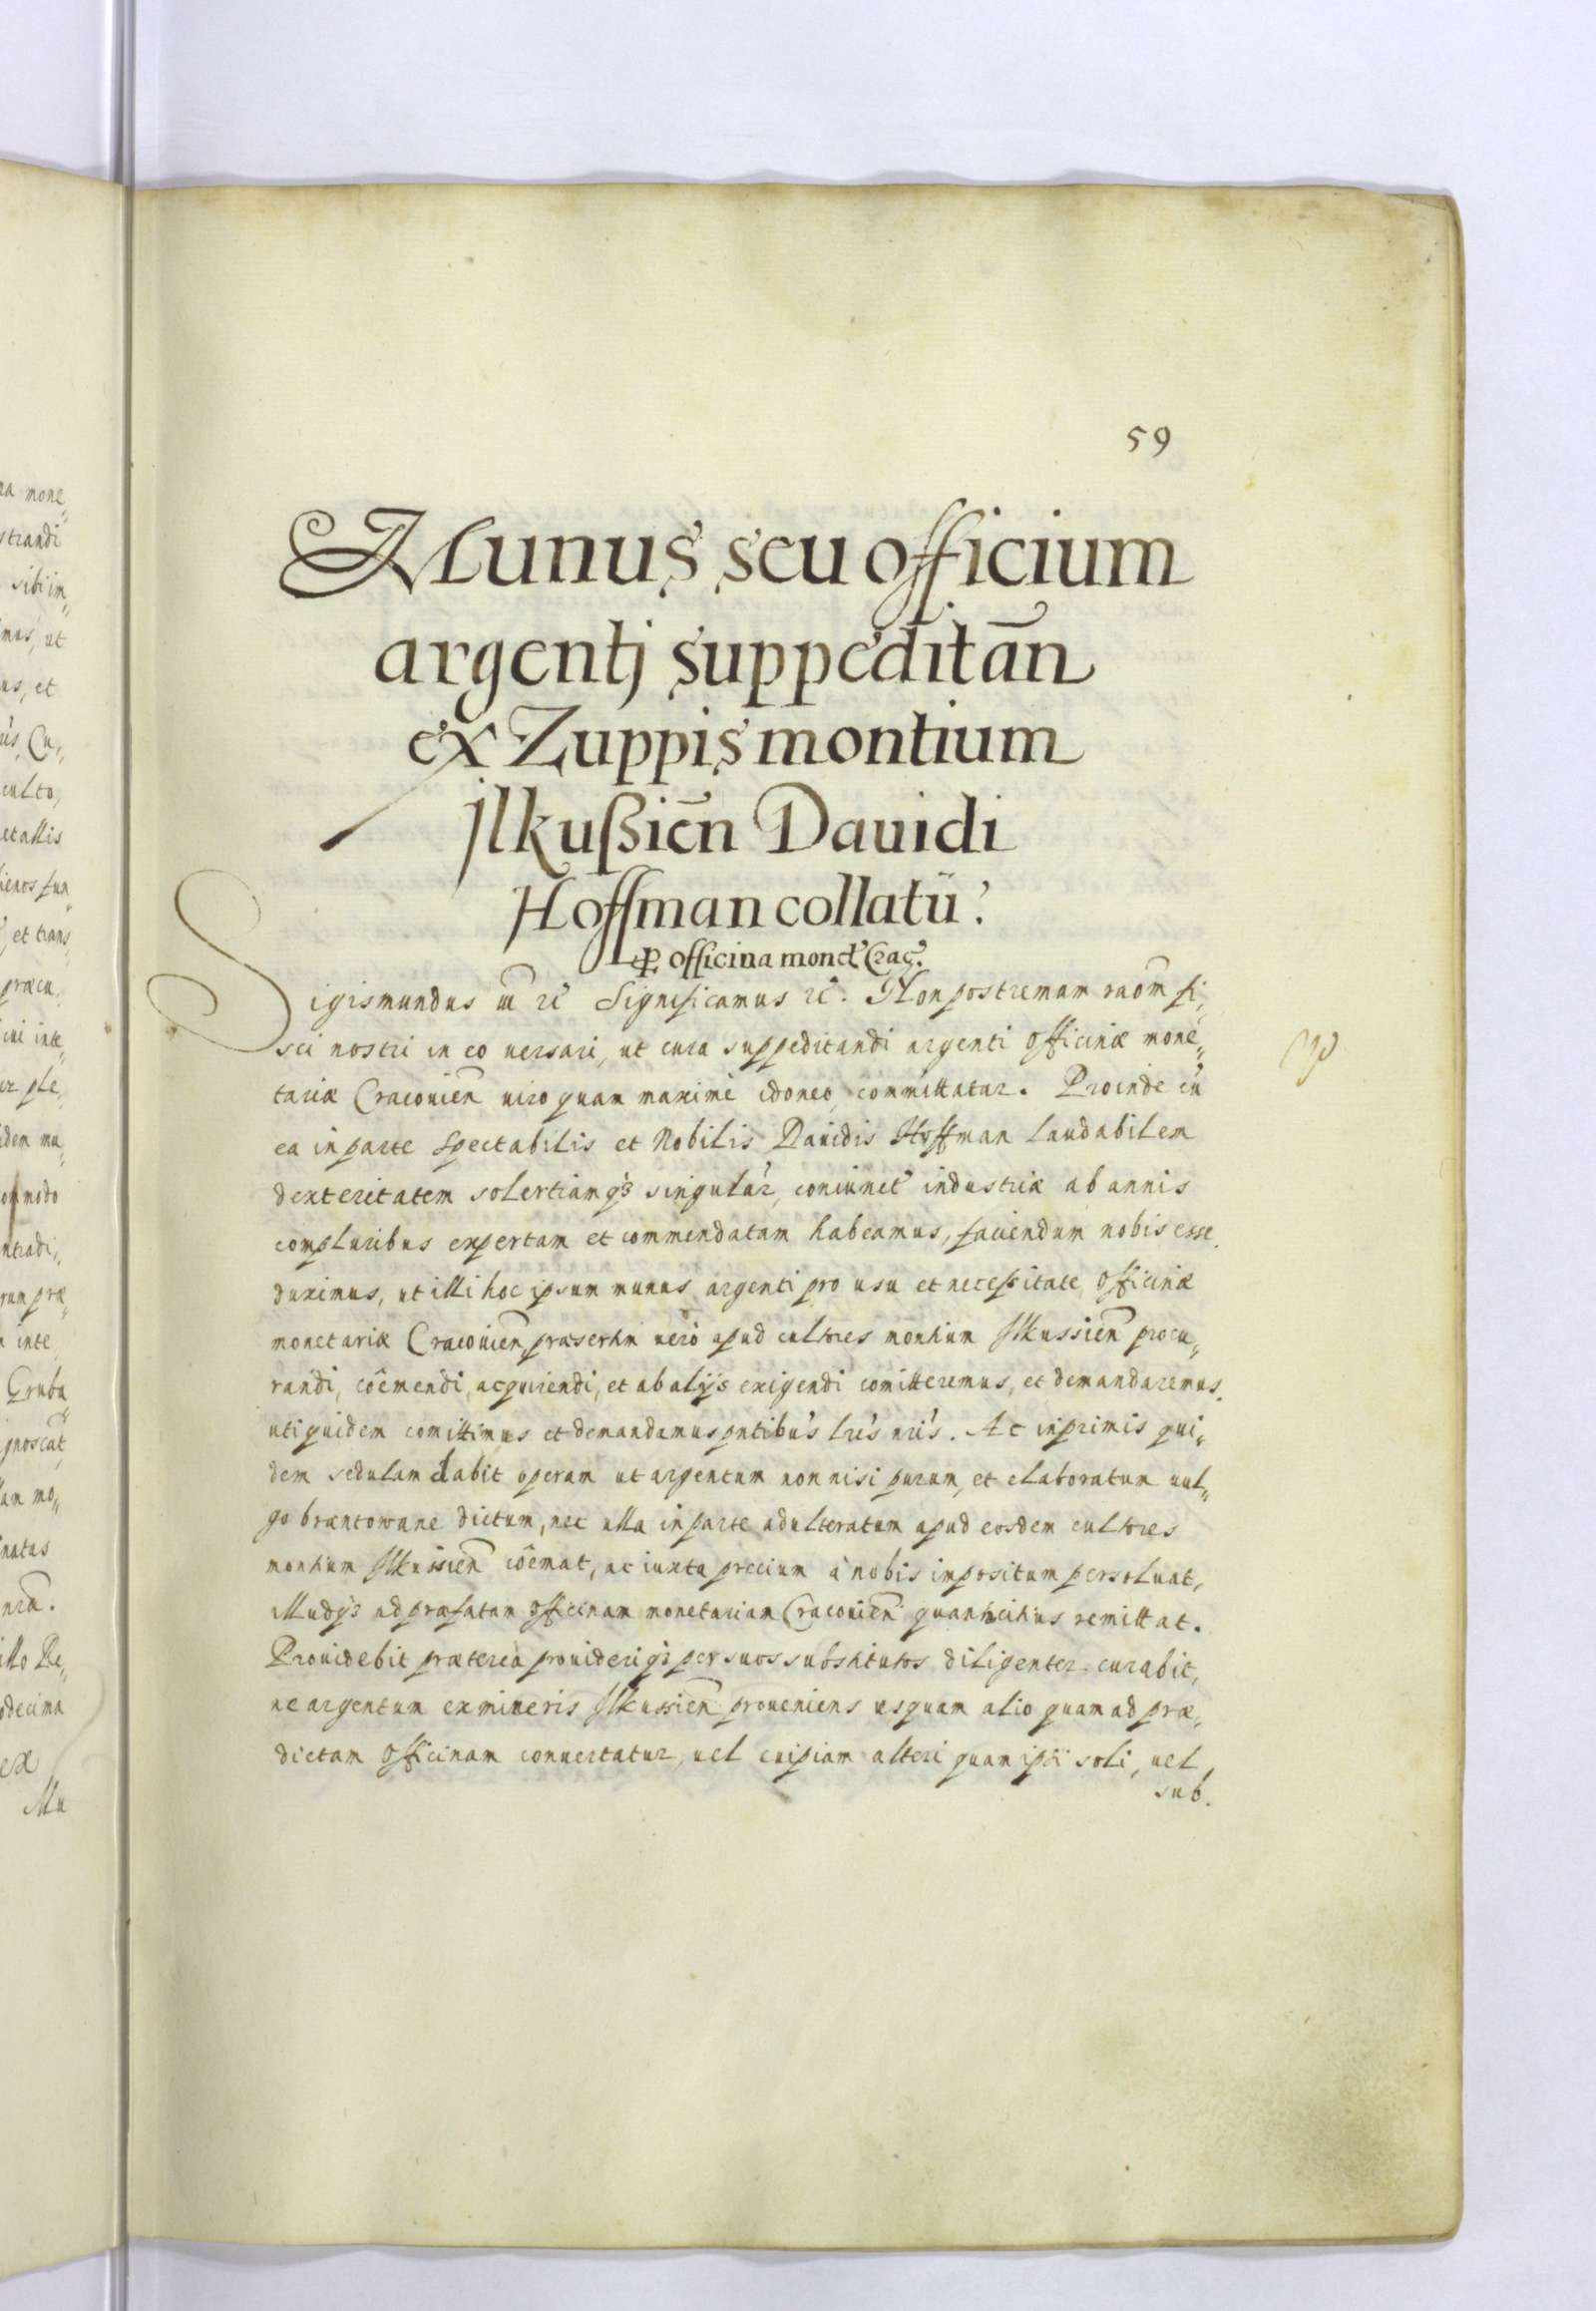 59
Munus seu officium
argentj suppeditãn
ex Zuppis montium
jlkußicn̄ Dauidi
Hoffman collatū.
ꝓ officina monet Crac.
Sigismundus iii rc Significamus rc. Non postremam raõm fi„
sci nostri in eo uersari, ut cura suppeditandi argenti officinæ mone„
tariæ Cracouien̄ uiro quam maximè idoneo committatur. Proinde cū
ea in parte Spectabilis et Nobilis Dauidis Hoffman laudabilem
dexteritatem solertiamqȝ singular, coniunct industriæ ab annis
compluribus expertam et commendatam habeamus, faciendum nobis esse
duximus, ut illi hoc ipsum munus argenti pro usu et necessitate officinæ
monetariæ Cracouien̄ præsertim uerò apud cultores montium Ilkussien̄ procu„
randi, coëmendi, acquirendi, et ab alijs exigendi comitteremus, et demandaremus.
uti quidem comittimus et demandamus pntibus lris nris. Ac inprimis qui„
dem sedulam dabit operam ut argentum non nisi purum, et elaboratum uul„
go brantowane dictum, nec ulla in parte adulteratum apud eosdem cultores
montium Ilkussien̄ coëmat, ac iuxta precium à nobis impositum persoluat,
illudqȝ ad præfatam officinam monetariam Cracouien̄ quanticitius remittat.
Prouidebit præterea prouideriqȝ per suos substitutos diligenter curabit,
ne argentum ex mineris Ilkussien̄ proueniens usquam alio quam ad præ„
dictam officinam conuertatur, uel cuipiam alteri quam ipsi soli, uel
sub.
ra mone„
strandi
sibi im„
mus, ut
us, et
culto,
etallis
et trans
præcu„
inte„
dem mu„
ommodo
ntradi„
rum præ„
inte
Gruba„
gnoscat
am mo„
natus
nra.
illo Re„
odecima
Mu